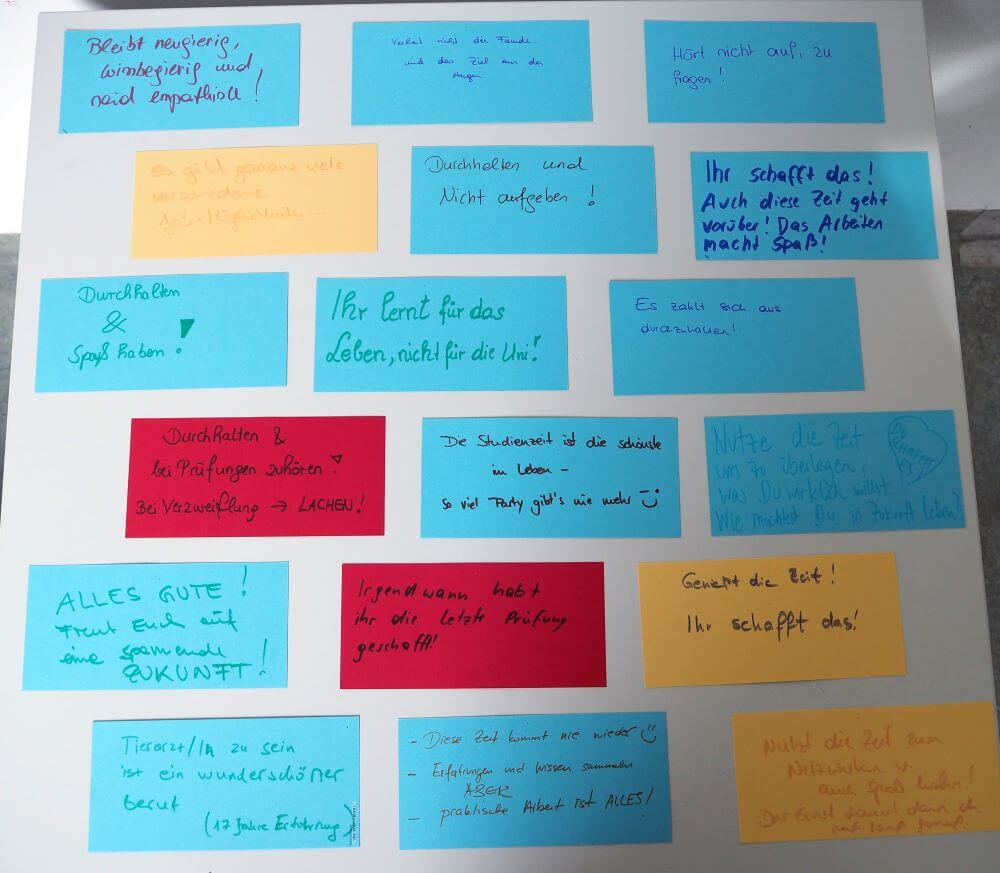 Bleibt neugierig,
wissbegierig und
seid empathisch!
Verliert nicht die Freude
und das Ziel aus den
Augen
Hört nicht auf, zu
fragen!
Es gibt gaaanz viele
verschiedene
Job-Möglichkeiten....
Durchhalten und
Nicht aufgeben!
Ihr schafft das!
Auch diese Zeit geht
vorüber! Das Arbeiten
macht Spaß!
Durchhalten
&
Spaß haben!
Ihr lernt für das
Leben, nicht für die Uni!
Es zahlt sich aus
durchzuhalten!
Durchhalten &
bei Prüfungen zuhören!
Bei Verzweiflung → LACHEN!
Die Studienzeit ist die schönste
im Leben -
so viel Party gibt's nie mehr :)
Nutze die Zeit
um zu überlegen,
was Du wirklich willst.
Wie möchtest Du in Zukunft leben?
Du
schaffst
es
ALLES GUTE!
Freut Euch auf
eine spannende
ZUKUNFT!
Irgendwann habt
ihr die letzte Prüfung
geschafft!
Genießt die Zeit!
Ihr schafft das!
Tierarzt/in zu sein
ist ein wunderschöner
beruf
(17 Jahre Erfahrung)
- Diese Zeit kommt nie wieder :)
- Erfahrungen und Wissen sammeln
ABER
- praktische Arbeit ist ALLES!
Nutzt die Zeit zum
Netzwerken u.
auch Spaß haben!
Der Ernst dauert dann eh
noch lang genug.